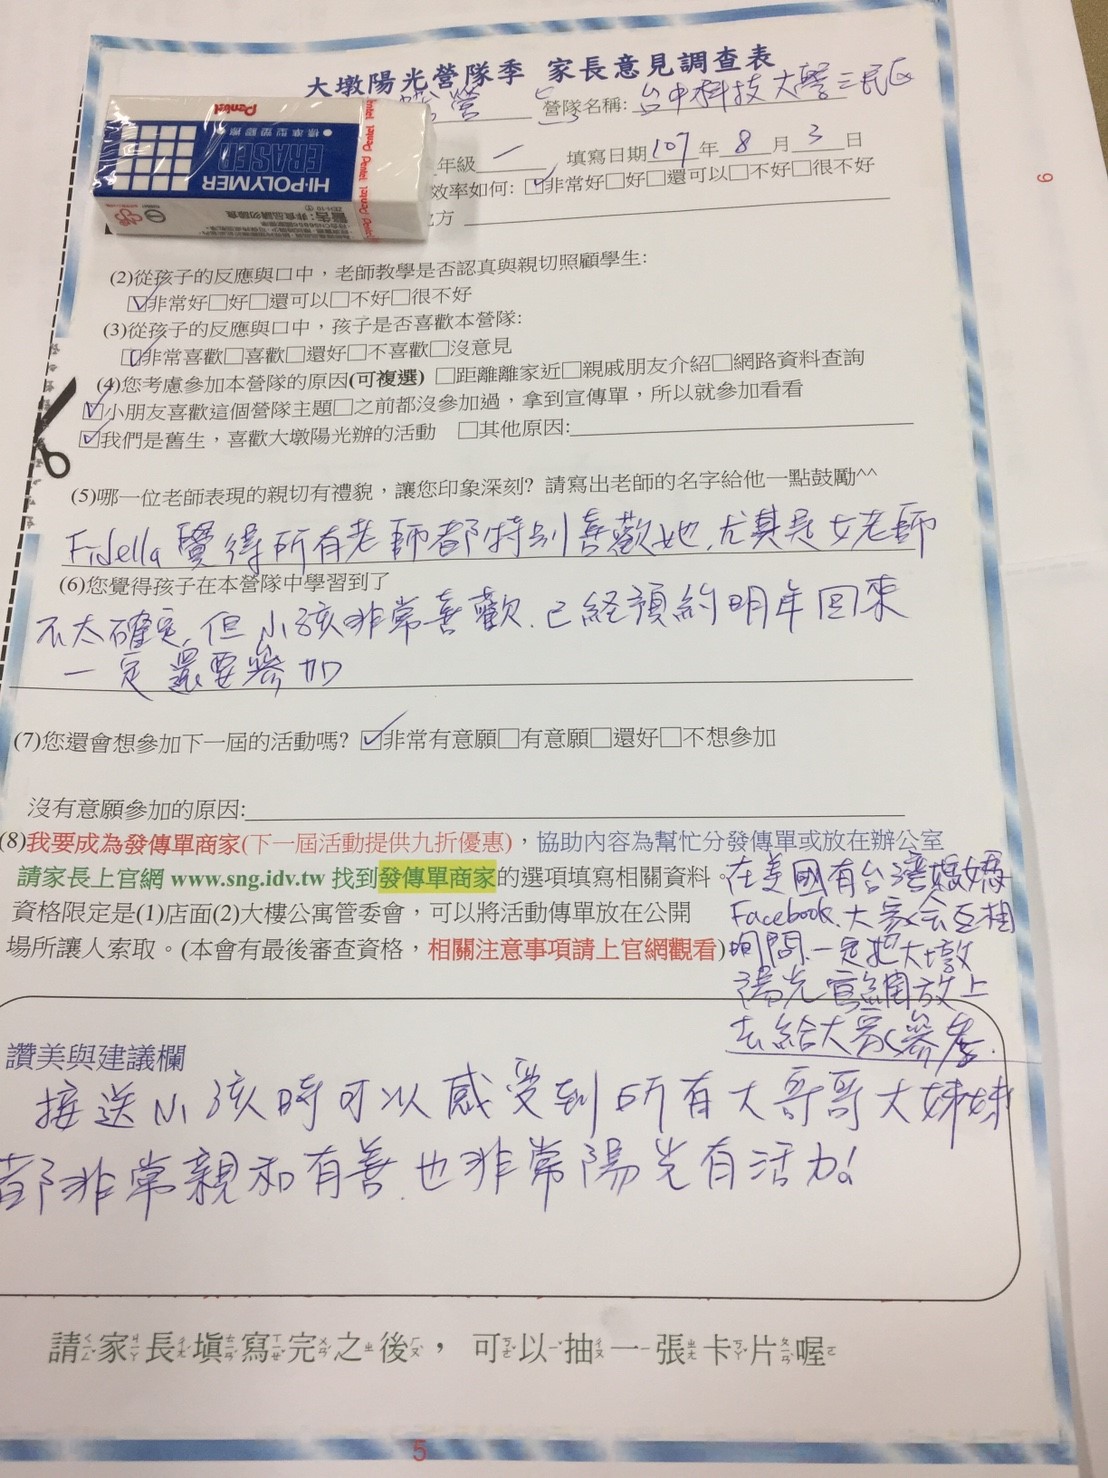 大墩陽光營隊季 家長意見調查表
營 營隊名稱:台中科技大學三民區
年級一 填寫日期107年8月3日
效率如何: ☑非常好□好□還可以□不好□很不好
方
Pentel
標準型塑膠擦
ERASER
HI-POLYMER
ZEH-10
警告:非食品請勿吞食
(2)從孩子的反應與口中，老師教學是否認真與親切照顧學生:
☑非常好□好□還可以□不好□很不好
(3)從孩子的反應與口中，孩子是否喜歡本營隊:
☑非常喜歡□喜歡□還好□不喜歡□沒意見
(4)您考慮參加本營隊的原因(可複選) □距離離家近□親戚朋友介紹□網路資料查詢
☑小朋友喜歡這個營隊主題□之前都沒參加過，拿到宣傳單，所以就參加看看
☑我們是舊生，喜歡大墩陽光辦的活動 □其他原因:
(5)哪一位老師表現的親切有禮貌，讓您印象深刻? 請寫出老師的名字給他一點鼓勵^^
Fidella 覺得所有老師都特別喜歡她,尤其是女老師
(6)您覺得孩子在本營隊中學習到了
不太確定,但小孩非常喜歡.已經預約明年回來
一定還要參加
(7)您還會想參加下一屆的活動嗎? ☑非常有意願□有意願□還好□不想參加
沒有意願參加的原因:
(8)我要成為發傳單商家(下一屆活動提供九折優惠)，協助內容為幫忙分發傳單或放在辦公室
請家長上官網 www.sng.idv.tw 找到發傳單商家的選項填寫相關資料。
資格限定是(1)店面(2)大樓公寓管委會，可以將活動傳單放在公開
場所讓人索取。(本會有最後審查資格，相關注意事項請上官網觀看)
在美國有台灣媽媽
Facebook.大家會互相
詢問.一定把大墩
陽光官網放上
去給大家參考.
讚美與建議欄
接送小孩時可以感受到所有大哥哥大姊姊
都非常親和有善.也非常陽光有活力!
請家長填寫完之後，可以抽一張卡片喔
5
6